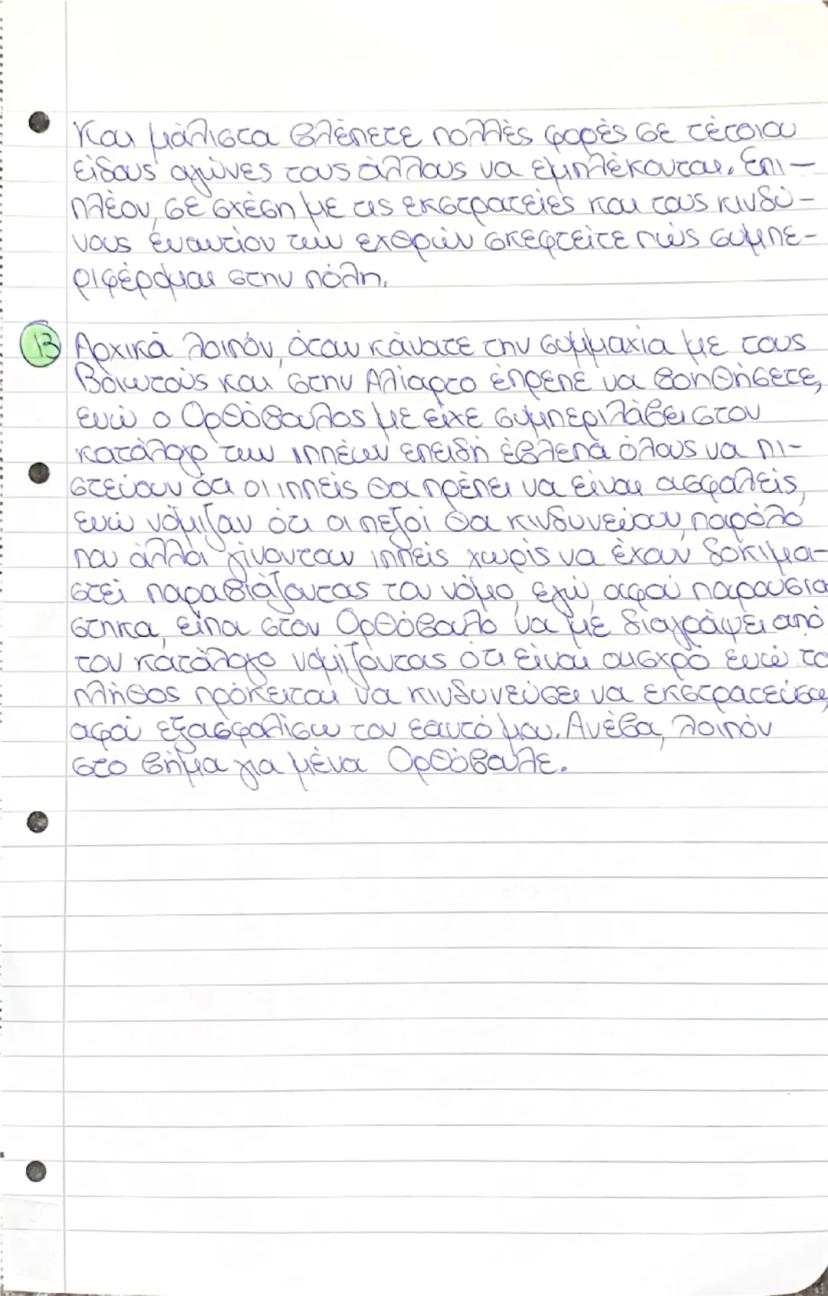 και μάλιστα βλέπετε πολλές φορές σε τέτοιου
είδους αγώνες τους άλλους να εμπλέκονται. Επι-
πλέον, σε σχέση με τις εκστρατείες και τους κινδύ-
νους έναντιον των εχθρών σκεφτείτε πώς συμπε-
ριφέρομαι στην πόλη.
13 Αρχικά λοιπόν, όταν κάνατε την συμμαχία με τους
Βοιωτούς και στην Αλίαρτο έπρεπε να βοηθήσετε,
ενώ ο Ορθόβουλος με είχε συμπεριλάβει στον
κατάλογο των ιππέων επειδή έβλεπα όλους να πι-
στεύουν ότι οι ιππείς θα πρέπει να είναι ασφαλείς,
ενώ νόμιζαν ότι οι πεζοί θα κινδυνεύουν, παρόλο
που άλλοι γίνονταν ιππείς χωρίς να έχουν δοκιμα-
στεί παραβιάζοντας τον νόμο, εγώ, αφού παρουσιά
στηκα, είπα στον Ορθόβουλο να με διαγράψει από
τον κατάλογο νομίζοντας ότι είναι αισχρό ενώ το
πλήθος πρόκειται να κινδυνεύσει να εκστρατεύσω,
αφού εξασφαλίσω τον εαυτό μου. Ανέβα, λοιπόν
στο βήμα για μένα Ορθόβουλε.